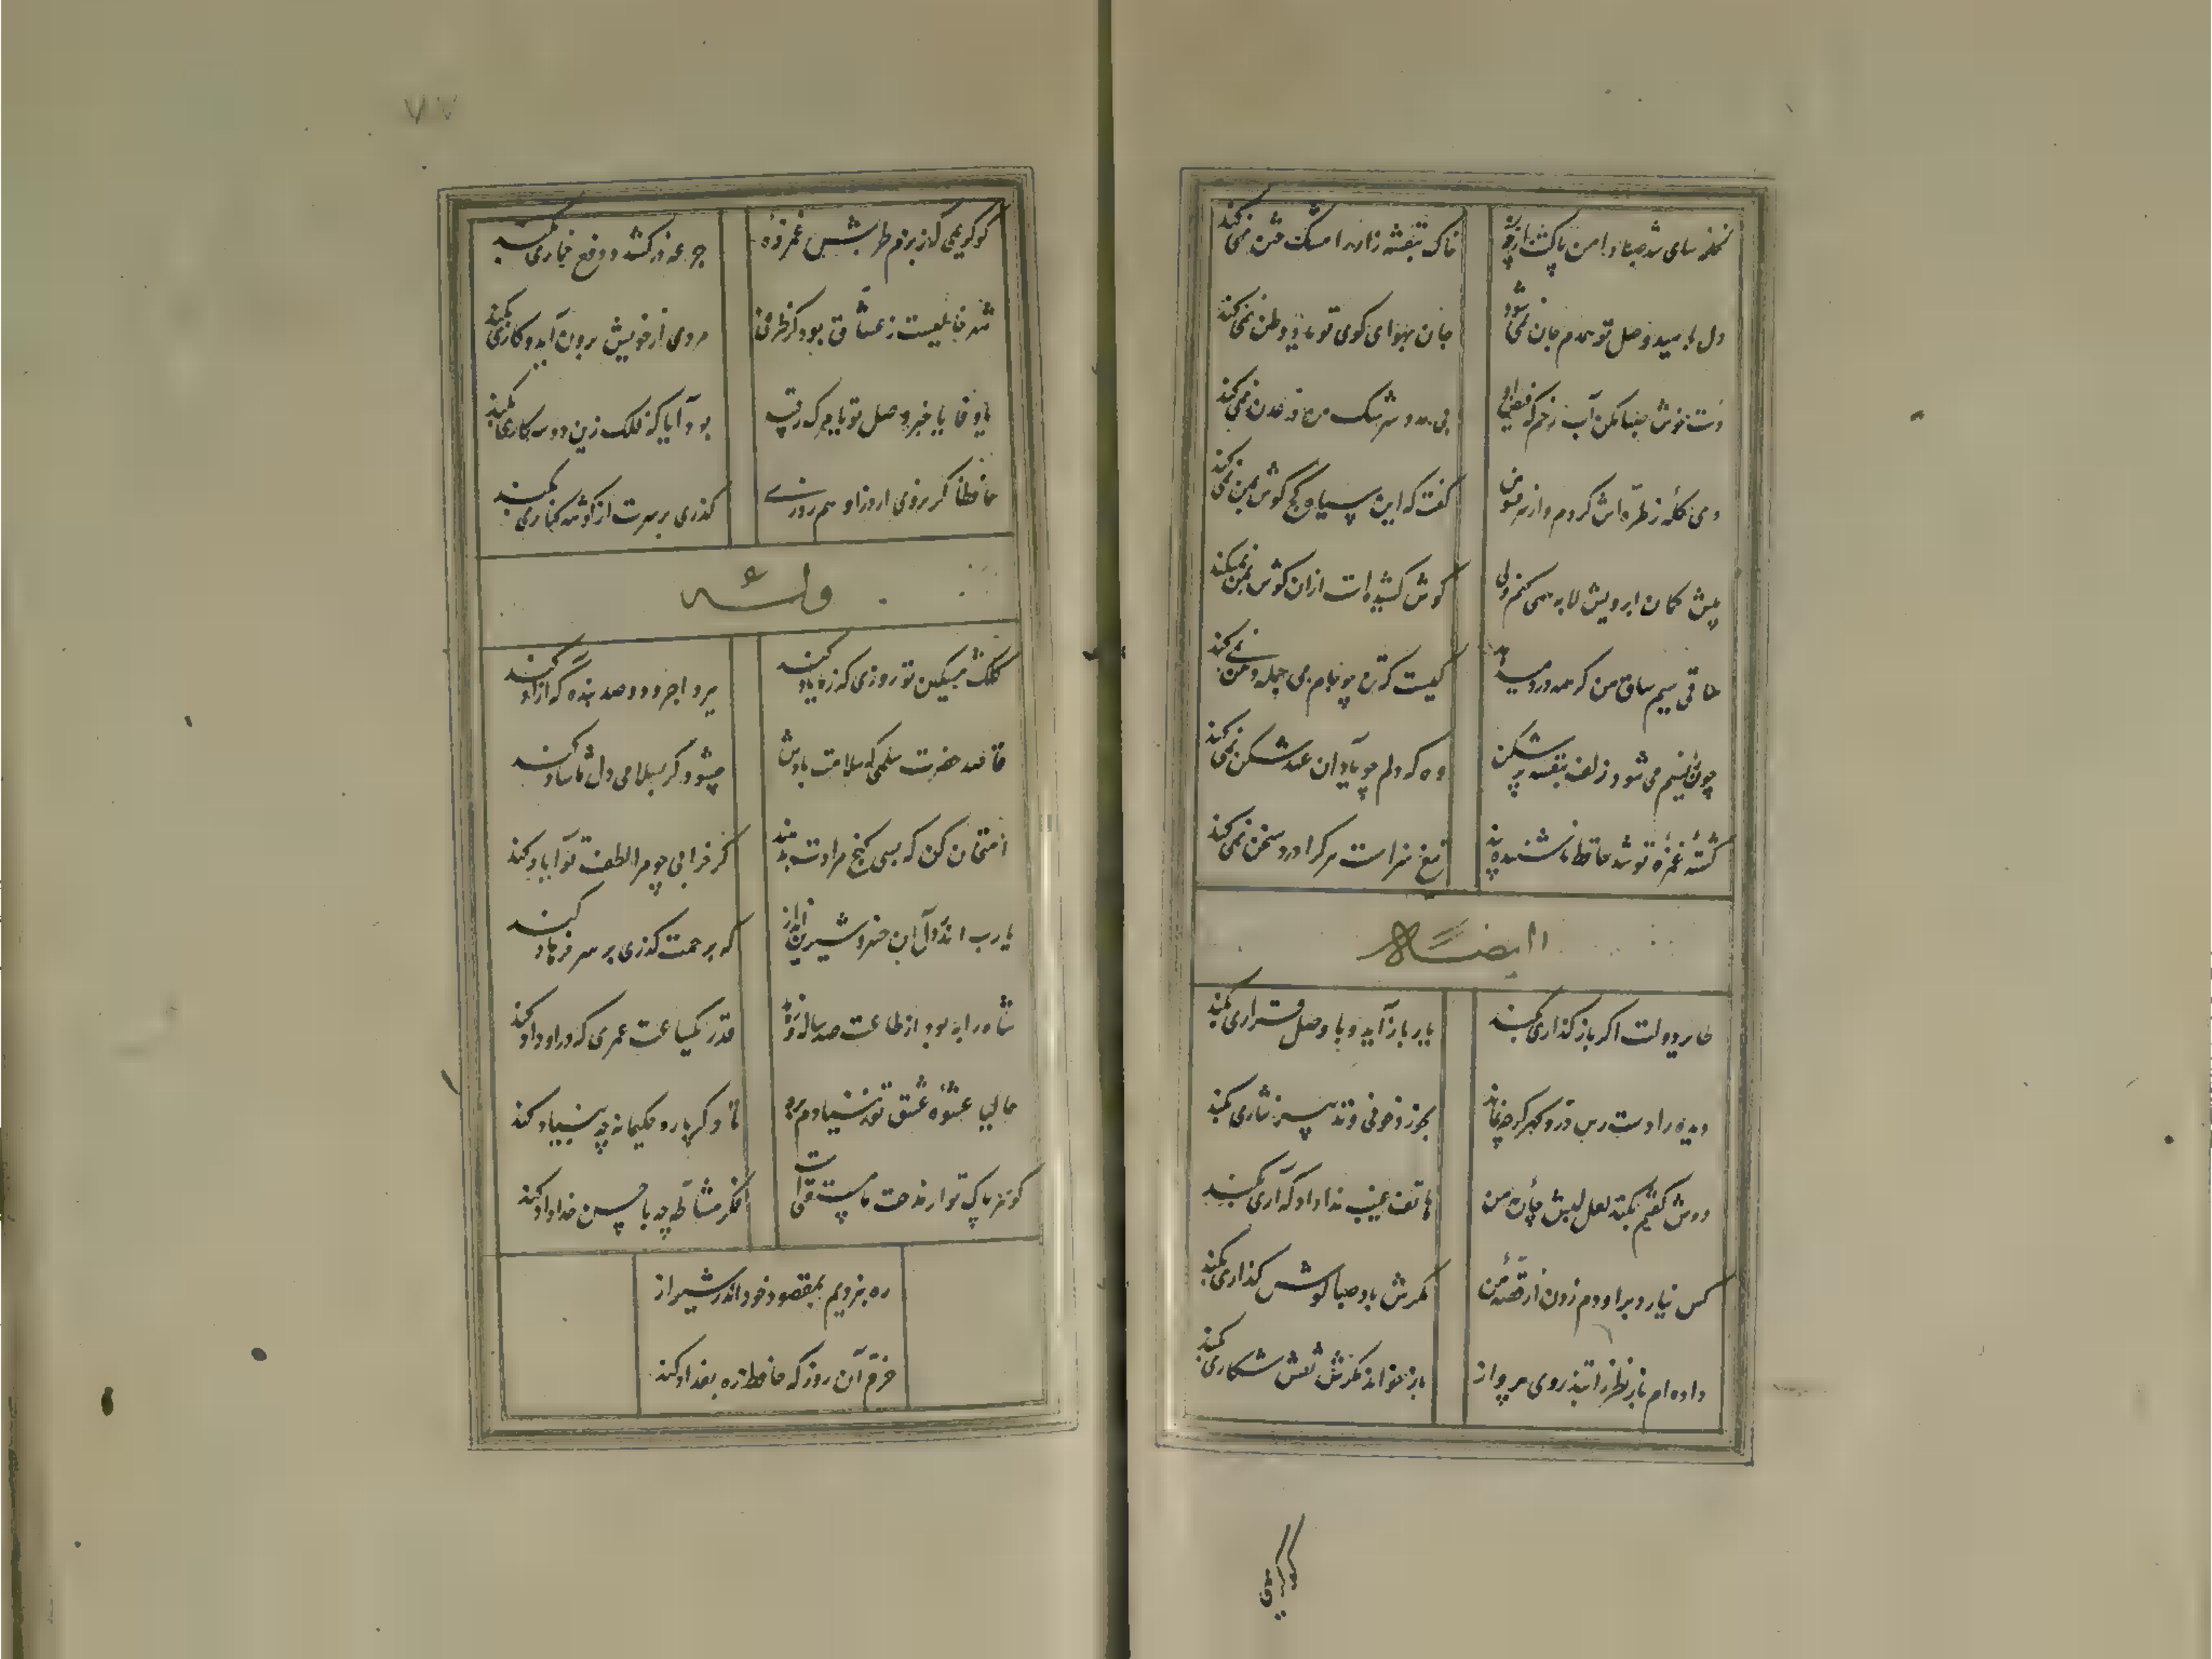 لخلخه سای شد صبا دامن پاکت از چه رو
خاک بنفشه زار را مشک ختن نمی کند
دل بامید وصل تو همدم جان نمی شود
جان بهوای کوی تو یاد وطن نمی کند
بی مدد سرشک من در عدن نمی کند
دی گله ز طره اش کردم و از سر فسوس
گفت که این سیاه کج گوش بمن نمی کند
پیش کمان ابرویش لابه همی کنم ولی
گوش کشیده است ازان گوش بمن نمیکند
ساقی سیم ساق من گر همه درد میدهد
کیست که تن چو جام می جمله دهن نمی کند
چون ز نسیم می شود زلف بنفشه پر شکن
وه که دلم چه یاد ان عهد شکن نمی کند
کشته غمزه تو شد حافظ ناشنیده پند
تیغ سزاست هر کرا درد سخن نمی کند
ایضا له
طایر دولت اگر باز گذاری بکند
یار باز آید و با وصل قراری بکند
دیده را دست رس در و گهر گرچه نماند
بخورد خونی و تدبیر نثاری بکند
دوش گفتم بکند لعل لبش چاره من
هاتف غیب ندا داد که آری بکند
کس نیارد بر او دم زدن از قصه من
مگرش باد صبا گوش گذاری بکند
داده ام باز نظر را بتذروی پرواز
باز خواند مگرش نقش شکاری بکند
کو کریمی که ز بزم طربش غمزده
جرعه درکشد و دفع خماری بکند
شهر خالیست ز عشاق بود کز طرفی
مردی از خویش برون آید و کاری بکند
یا وفا یا خبر وصل تو یا مرگ رقیب
بود آیا که فلک زین دو سه کاری بکند
حافظا گر نروی از در او هم روزی
گذری بر سرت از گوشه کناری بکند
وله
کلک مشکین تو روزی که ز ما یاد کند
ببرد اجر دو صد بنده که آزاد کند
قاصد حضرت سلمی که سلامت بادش
چه شود گر بسلامی دل ما شاد کند
امتحان کن که بسی گنج مرادت بدهند
گر خرابی چو مرا لطف تو آباد کند
یارب اندر دل آن خسرو شیرین انداز
که برحمت گذری بر سر فرهاد کند
شاه را به بود از طاعت صد ساله و زهد
قدر یکساعت عمری که درو داد کند
حالیا عشوه عشق تو ز بنیادم برد
تا دگر باره حکیمانه چه بنیاد کند
گوهر پاک تو از مدحت ما مستغنی است
فکر مشاطه چه با حسن خداداد کند
ره نبردیم بمقصود خود اندر شیراز
خرم آن روز که حافظ ره بغداد کند
کو کریمی